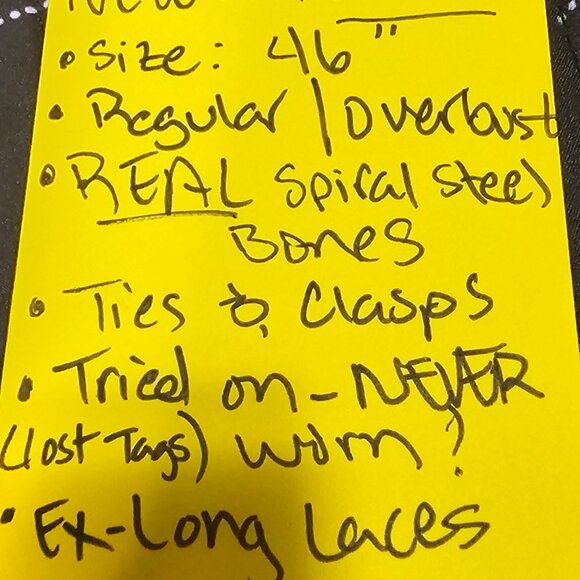 New
• Size: 46"
• Regular / Overbust
• REAL Spiral Steel
Bones
• Ties & Clasps
• Tried on - NEVER
(lost Tags) worn?
• Ex-Long Laces